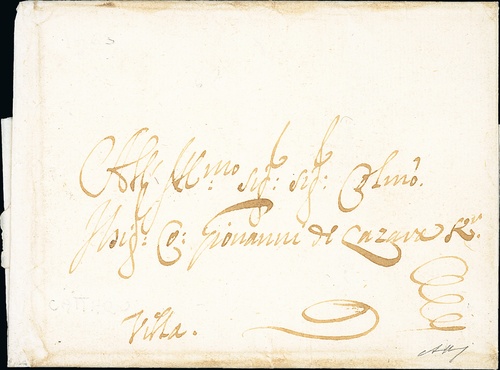 All Ill.mo Sig: Sig: Colmo.
Il Sig: Co: Giovanni de Lazara K.r
Villa.